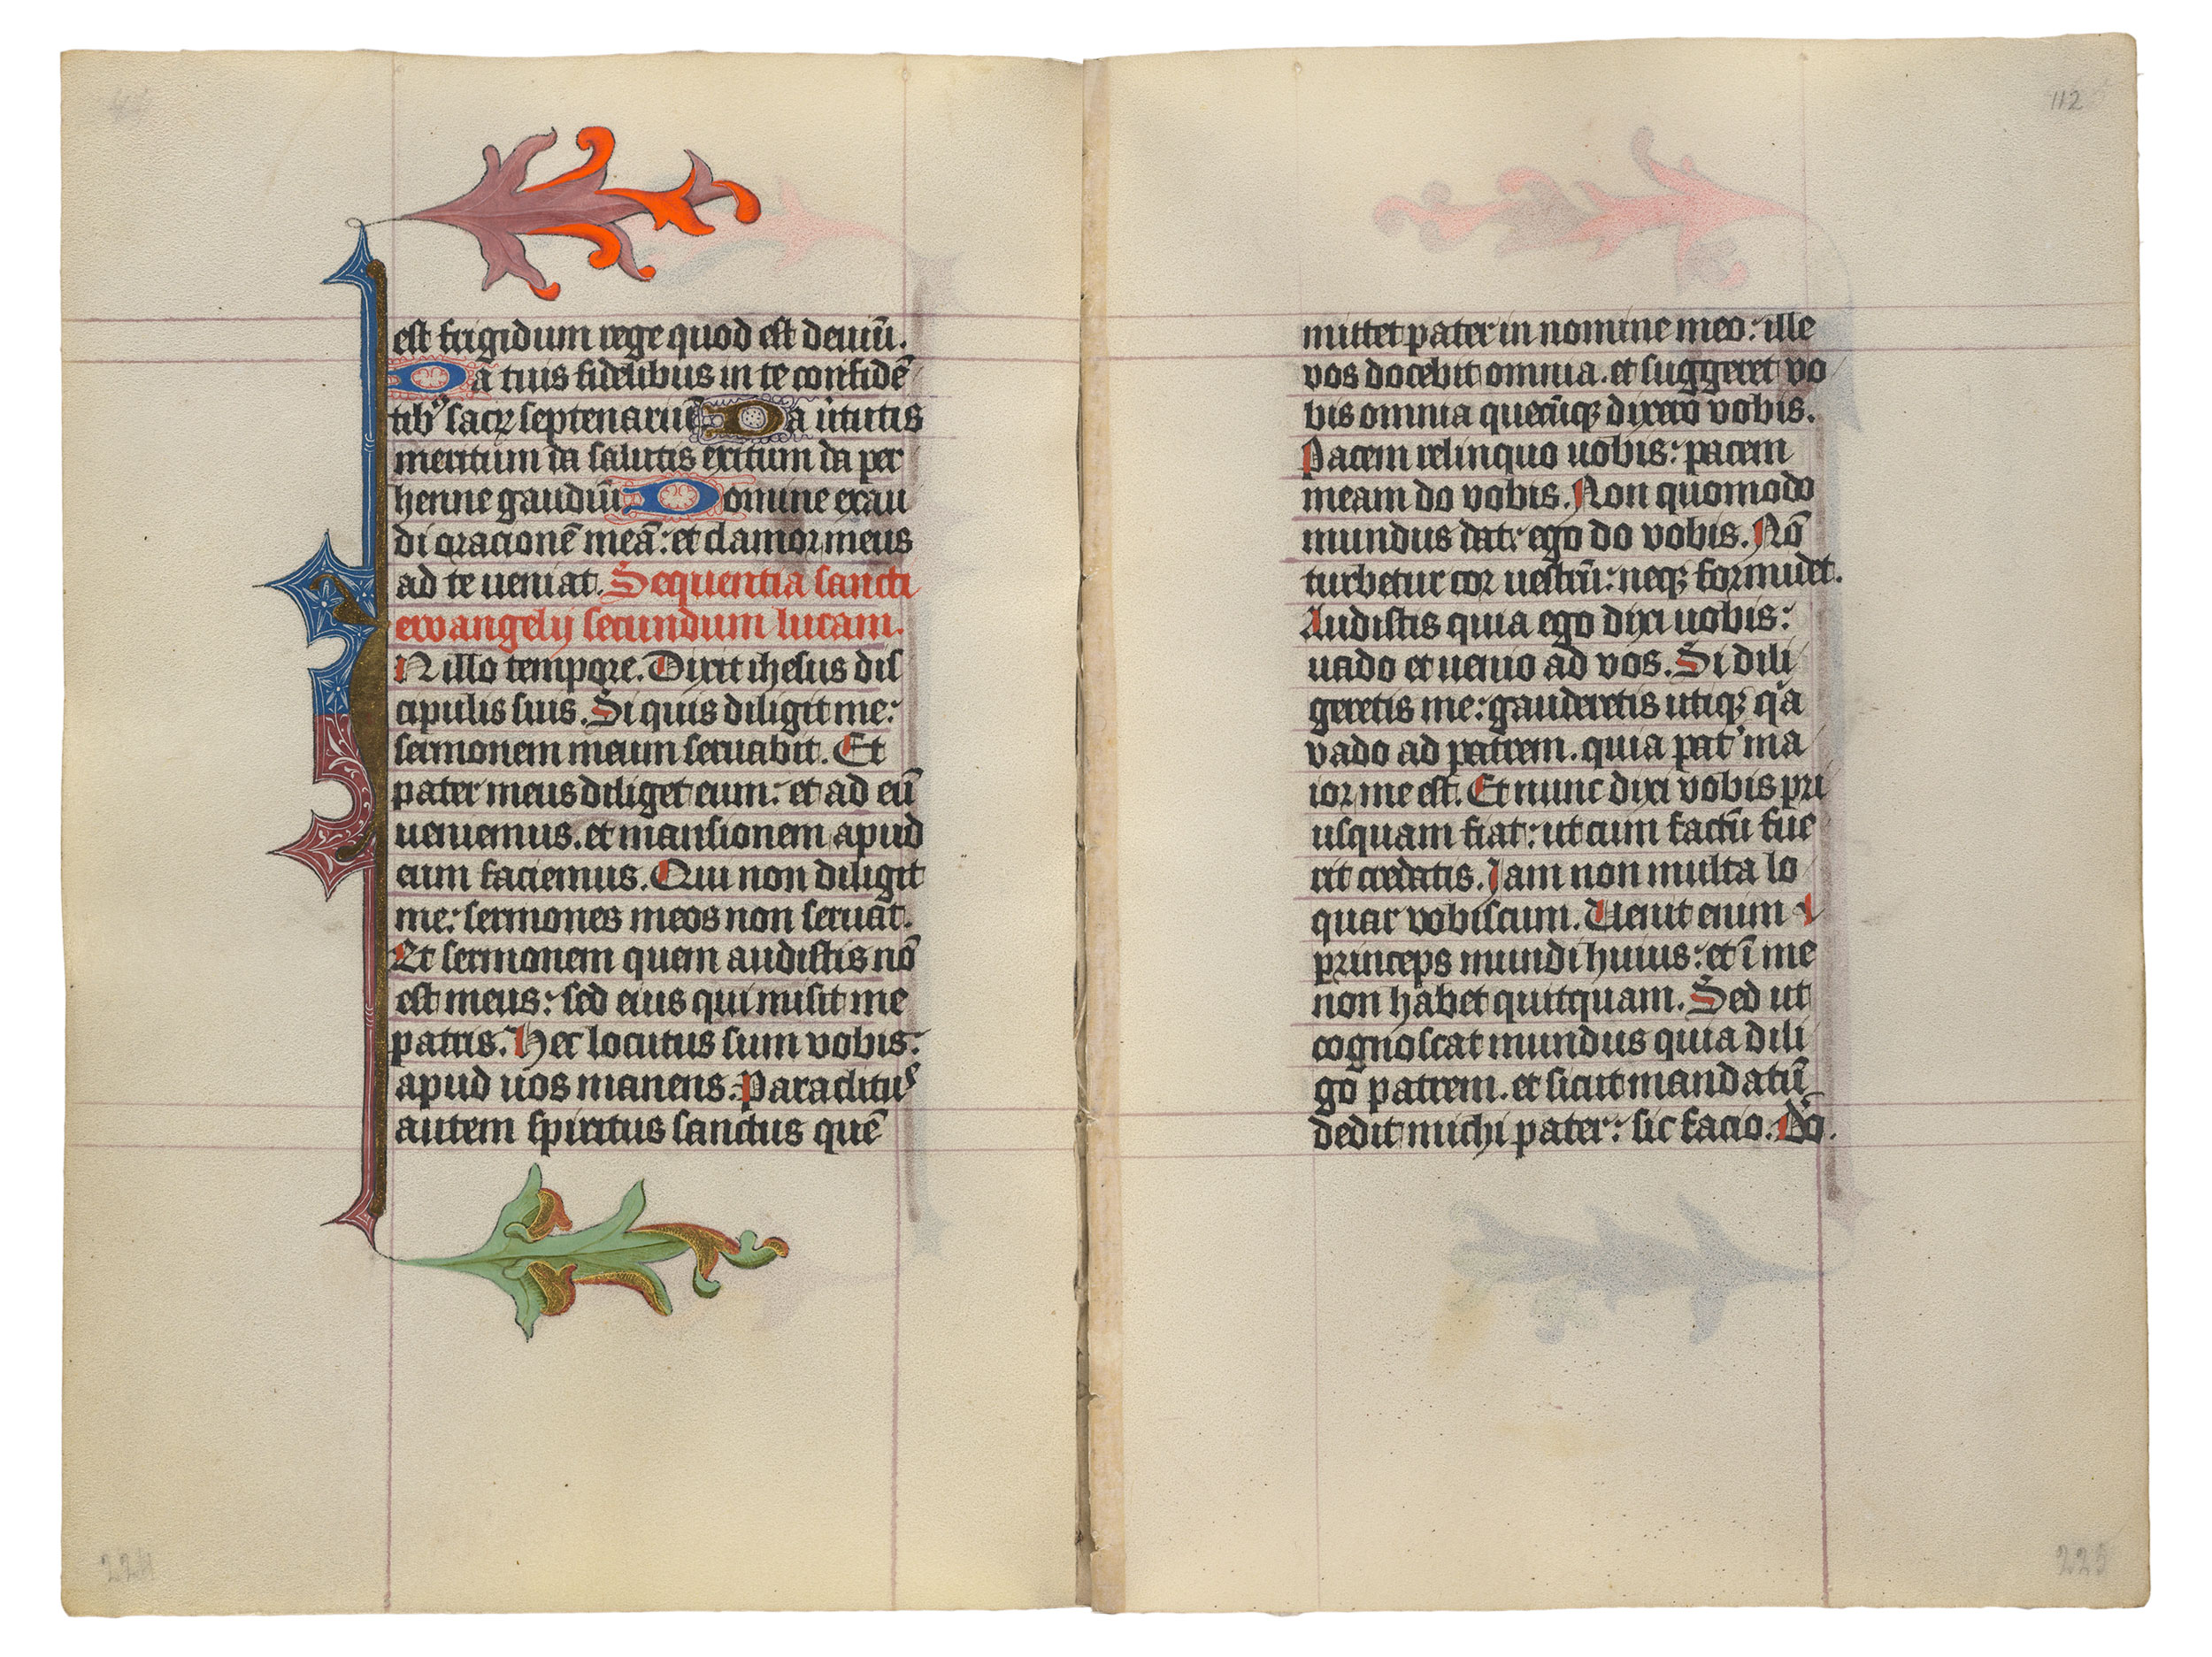 est frigidum rege quod est deuiū.
Da tuis fidelibus in te confidē
tibꝰ sacꝝ septenariū Da ùtutis
meritum da salutis exitum da per
henne gaudiū Domine exau
di oracionē meā: et clamor meus
ad te ueniat. Sequentia sancti
ewangelij secundum lucam.
IN illo tempore. Dixit ihesus dis
cipulis suis. Si quis diligit me:
sermonem meum seruabit. Et
pater meus diliget eum: et ad eū
ueniemus. et mansionem apud
eum faciemus. Qui non diligit
me: sermones meos non seruat.
Et sermonem quem audistis nō
est meus: sed eius qui misit me
patris. Hec locutus sum vobis:
apud uos manens. Paraclitus
autem spiritus sanctus quē
112
mittet pater in nomine meo: ille
vos docebit omnia. et suggeret vo
bis omnia quecūqꝫ dixero vobis.
Pacem relinquo uobis: pacem
meam do vobis. Non quomodo
mundus dat: ego do vobis. Nō
turbetur cor uestrū: neqꝫ formidet.
Audistis quia ego dixi uobis:
uado et uenio ad vos. Si dili
geretis me: gauderetis utiqꝫ qͥa
vado ad patrem. quia pat᾿ ma
ior me est. Et nunc dixi vobis pri
usquam fiat: ut cum factū fue
rit credatis. Iam non multa lo
quar vobiscum. Uenit enim
princeps mundi huius: et ī me
non habet quitquam. Sed ut
cognoscat mundus quia dili
go patrem. et sicut mandatū
dedit michi pater: sic facio. Do.
224
225